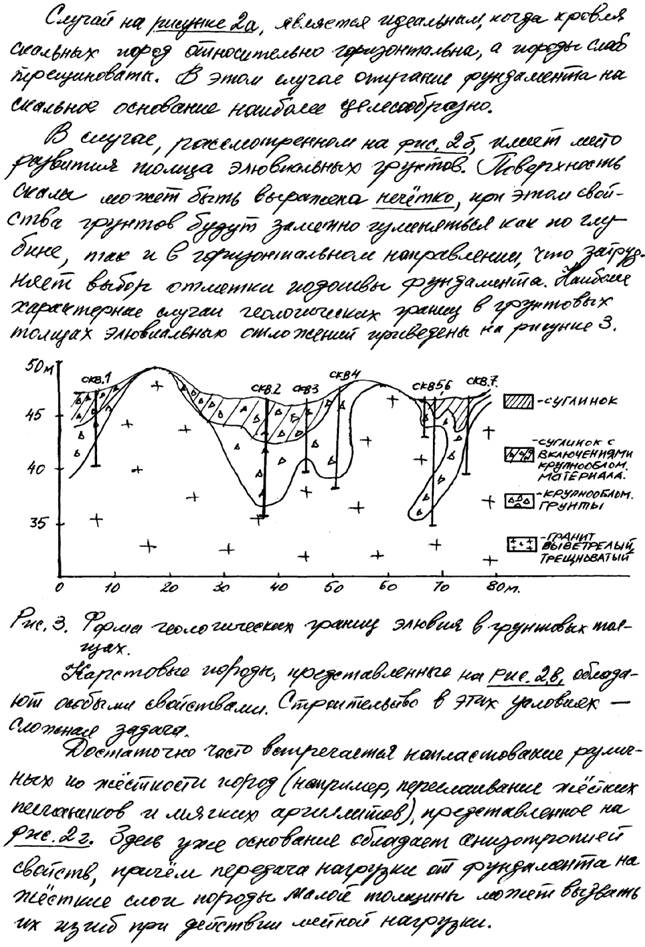 Случай на рисунке 2а, является идеальным, когда кровля
скальных пород относительно горизонтальна, а породы слаб
трещиноваты. В этом случае опирание фундамента на
скальное основание наиболее целесообразно.
В случае, рассмотренном на рис. 2б, имеет место
развития толща элювиальных грунтов. Поверхность
скалы может быть выражена нечётко, при этом свой-
ства грунтов будут заметно изменяться как по глу-
бине, так и в горизонтальном направлении, что затруд-
няет выбор отметки подошвы фундамента. Наиболее
характерные случаи геологических границ в грунтовых
толщах элювиальных отложений приведены на рисунке 3.
50м
45
40
35
0 10 20 30 40 50 60 70 80м.
скв.1
скв.2
скв3
скв4
скв5,6
скв.7.
-СУГЛИНОК
-СУГЛИНОК С
ВКЛЮЧЕНИЯМИ
КРУПНООБЛОМ.
МАТЕРИАЛА.
-КРУПНООБЛОМ.
ГРУНТЫ
-ГРАНИТ
ВЫВЕТРЕЛЫЙ,
ТРЕЩНОВАТЫЙ
Рис. 3. Форма геологических границ элювия в грунтовых тол-
щах.
Карстовые породы, представленные на рис. 2в, облада-
ют особыми свойствами. Строительство в этих условиях —
сложная задача.
Достаточно часто встречается напластование различ-
ных по жёсткости пород (например, переслаивание жёстких
песчаников и мягких аргиллитов), представленное на
рис. 2г. Здесь уже основание обладает анизотропией
свойств, причём передача нагрузки от фундамента на
жёсткие слои породы малой толщины может вызвать
их изгиб при действии местной нагрузки.